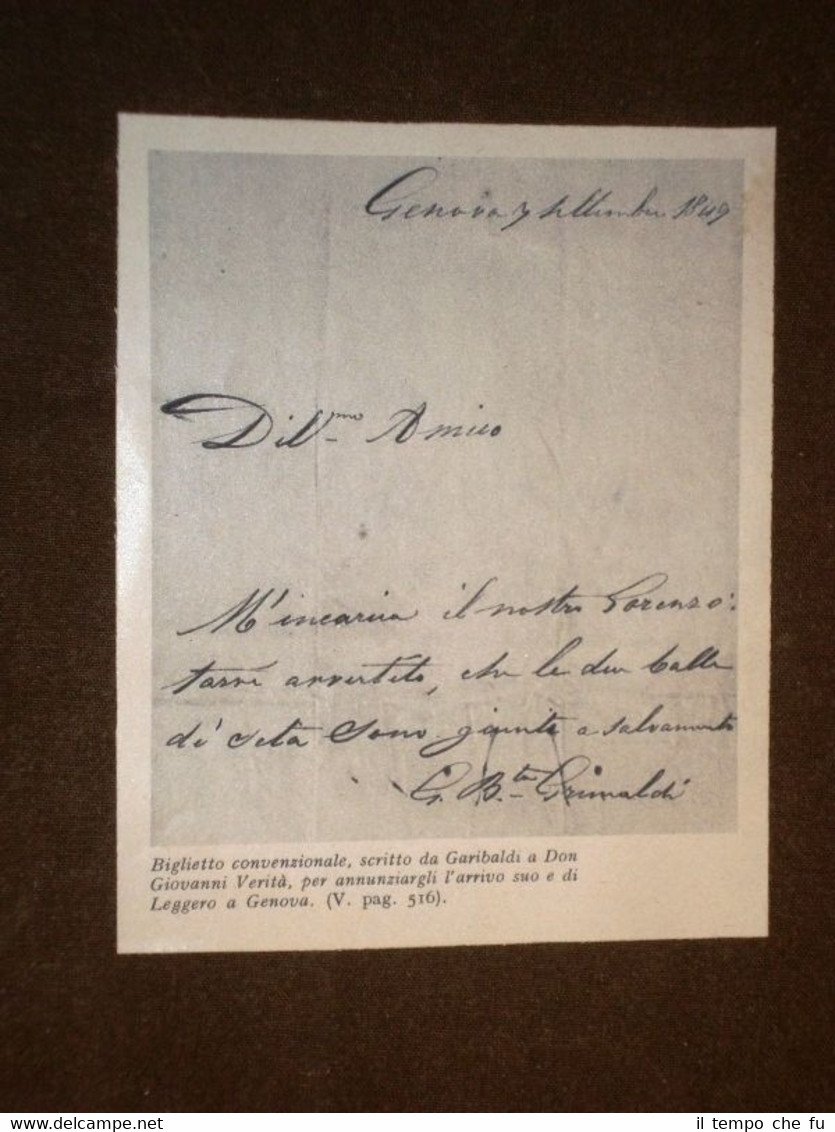 Genova 7 settembre 1849
Dil.mo Amico
M'incarica il nostro Lorenzo:
farvi avvertito, che le due balle
di seta sono giunte a salvamento
G. B.ta Grimaldi
Biglietto convenzionale, scritto da Garibaldi a Don
Giovanni Verità, per annunziargli l'arrivo suo e di
Leggero a Genova. (V. pag. 516).
www.delcampe.net
il tempo che fu